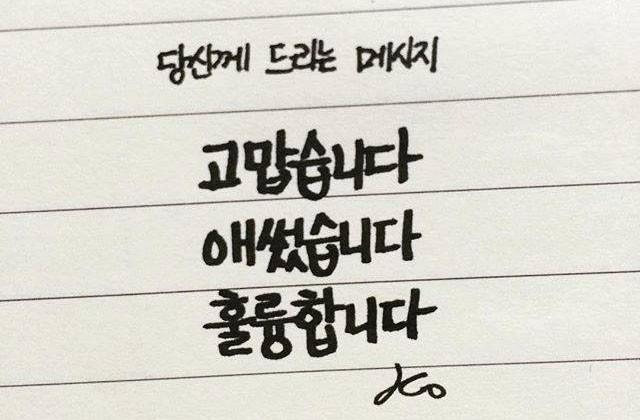 당신께 드리는 메시지
고맙습니다
애썼습니다
훌륭합니다